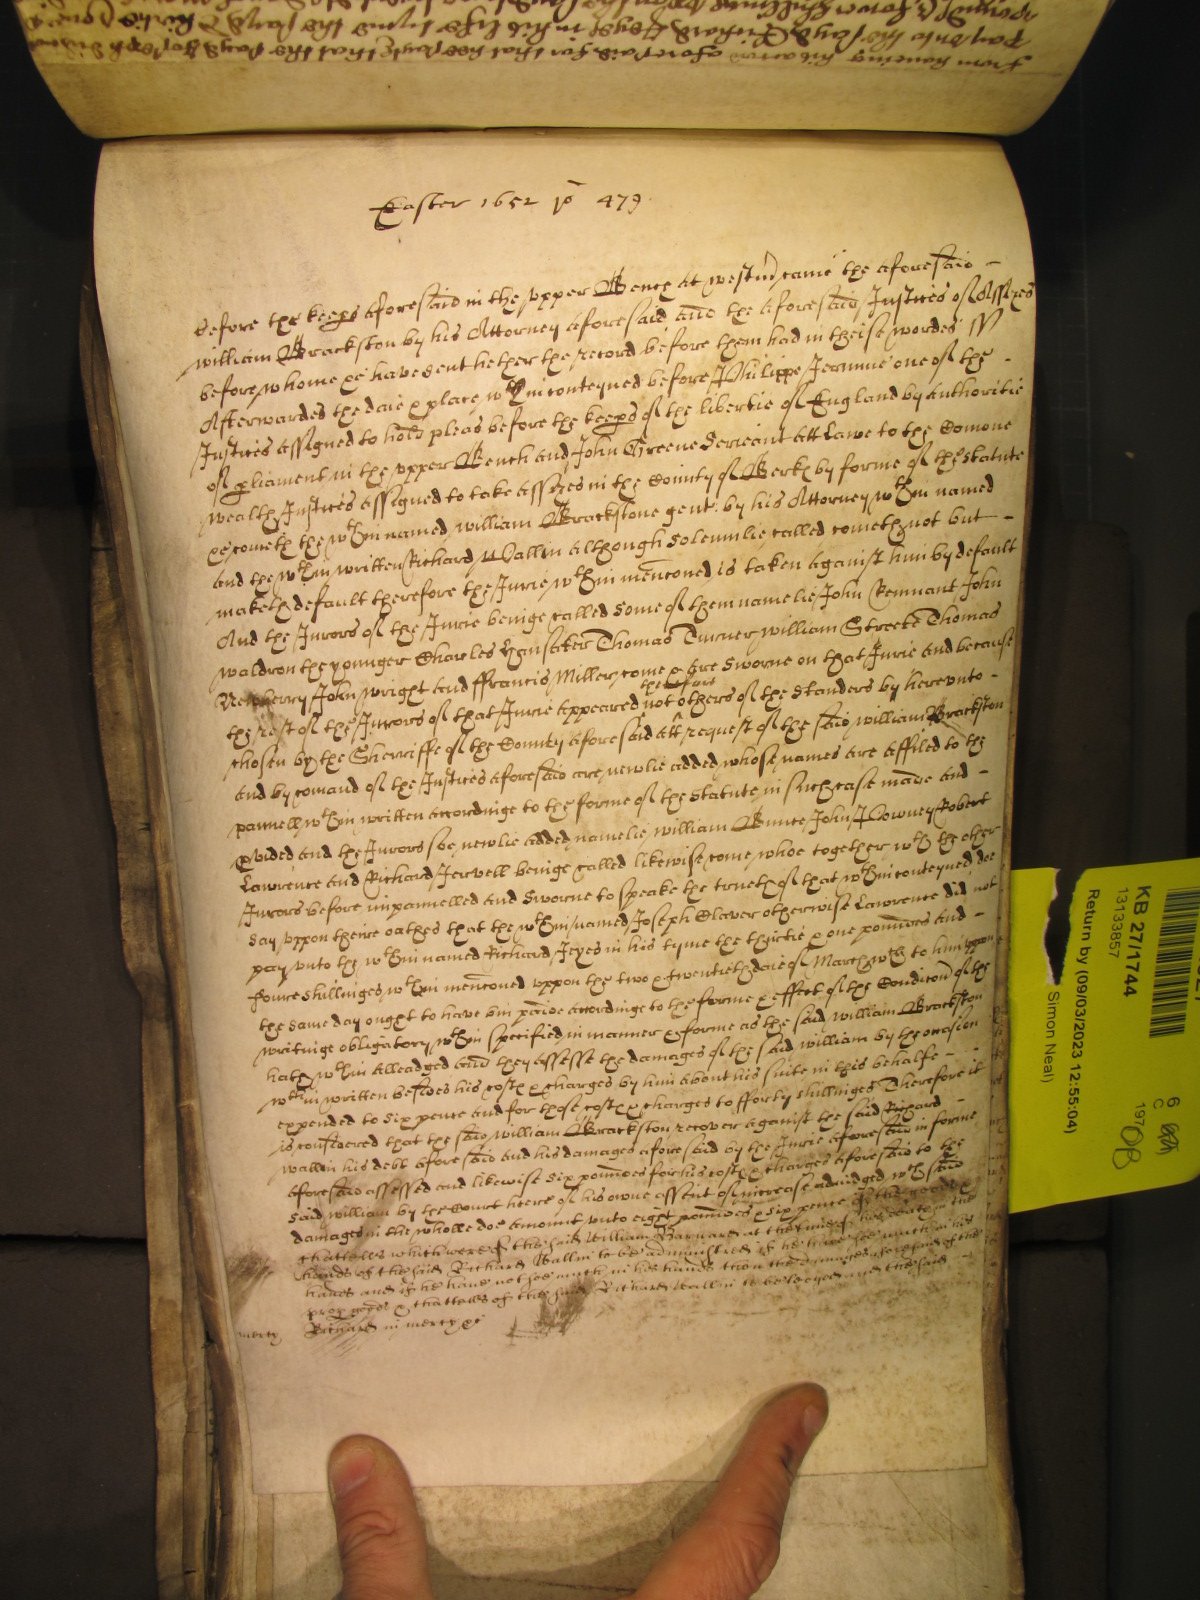 from haveing his accon aforesaid for that hee saith that the said Joseph did not
Pay unto the said Richard Jeyes in his life tyme the said thirtie & one
pounds & fower shillings
Easter 1652 ro 479
before the keeps aforesaid in the upper Bench at westm came the aforesaid
william Brackston by his Attorney aforesaid and the aforesaid Justices of Assizes
before whome &c have sent hether the record before them had in theise wordes ss
Afterwardes the daie & place wthin conteyned before Philippe Jermine one of the
Justices assigned to hold pleas before the keeps of the libertie of England by authoritie
of pliament in the upper Bench and John Greene Serieant att Lawe to the Comone
wealth Justices assigned to take assizes in the County of Berk by forme of the statute
&c cometh the wthin named william Brackstone gent by his Attorney wthin named
and the wthin written Richard Wallin although solemnlie called cometh not but
maketh default therefore the Jurie wthin menconed is taken against him by default
And the Jurors of the Jurie beinge called some of them namelie John Remnant John
waldron the younger Charles Hansaker Thomas Turner william Streete Thomas
Newberry John wright and ffrancis Miller come & are sworne on that Jurie and because
the rest of the Jurors of that Jurie appeared not therefore others of the standers by hereunto
chosen by the Sherriffe of the County aforesaid att request of the said william Brackston
and by comand of the Justices aforesaid are newlie added whose names are affiled to the
pannell wthin written accordinge to the forme of the statute in such case made and
pvided and the Jurors soe newlie added namelie william Bunce John Downey Robert
Lawrence and Richard Jervell beinge called likewise come whoe together wth the other
Jurors before impannelled and sworne to speake the trueth of that wthin conteyned doe
say uppon theire oathes that the wthin named Joseph Slaver otherwise Lawrence did not
pay unto the wthin named Richard Jeyes in his tyme the thirtie & one pounds and
foure shillinges wthin menconed uppon the two & twentieth daie of March wch to him uppon
the same day ought to have bin paide accordinge to the forme & effect of the Condicon of the
writinge obligatory wthin specified in manner & forme as the said william Brackston
hath wthin alleadged and they assesse the damages of the said william by the occasion
wthin written besides his costs & charges by him about his suite in this behalfe
expended to six pence and for those costs & charges to fforty shillinges Therefore it
is considered that the said william Brackston recover against the said Richard
wallin his debt aforesaid and his damages aforesaid by the Jurie aforesaid in forme
aforesaid assessed and likewise six poundes for his costs & charges aforesaid to the
said william by the Court heere of his owne assent of increase adiudged wch said
damages in the wholle doe amount unto eight poundes & six pence of the goods &
chattells which were of the said William Barnard at the time of his death in the
hands of the said Richard Wallin to be administred if he have soe much in his
hands and if he have not soe much in his hands then the damages aforesaid of the
prop goods & chattells of the said Richard Wallin to be levyed and the said
Richard in mercy &c
mercy
KB 27/1744
13133857
Return by (09/03/2023 12:55:04)
Simon Neal)
6
C
197